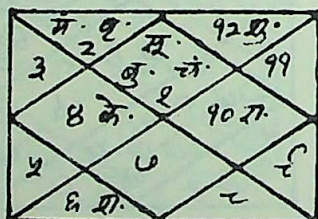 मं. बृ. सू. १२ शु.
३ २ बु. चं. ११
१
४ के. १० रा.
५ ७ ९
६ श. ८